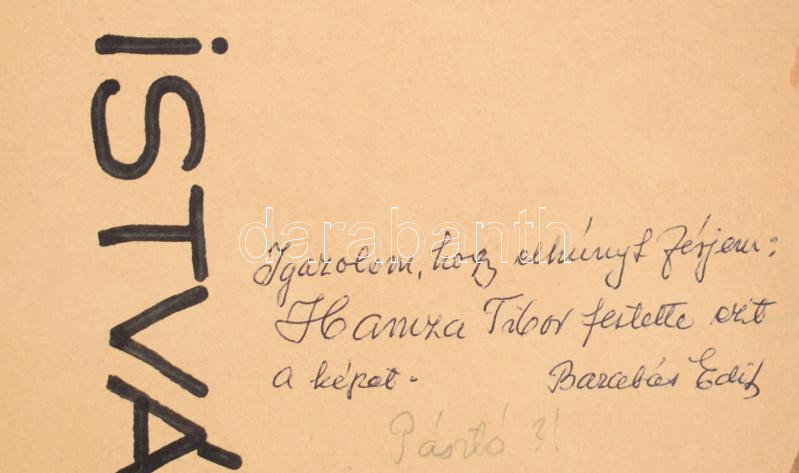 iSTVÁ
Igazolom, hogy elhúnyt férjem:
Hamza Tibor festette ezt
a képet. Barabás Edit
Pásztó ?!
darabanth